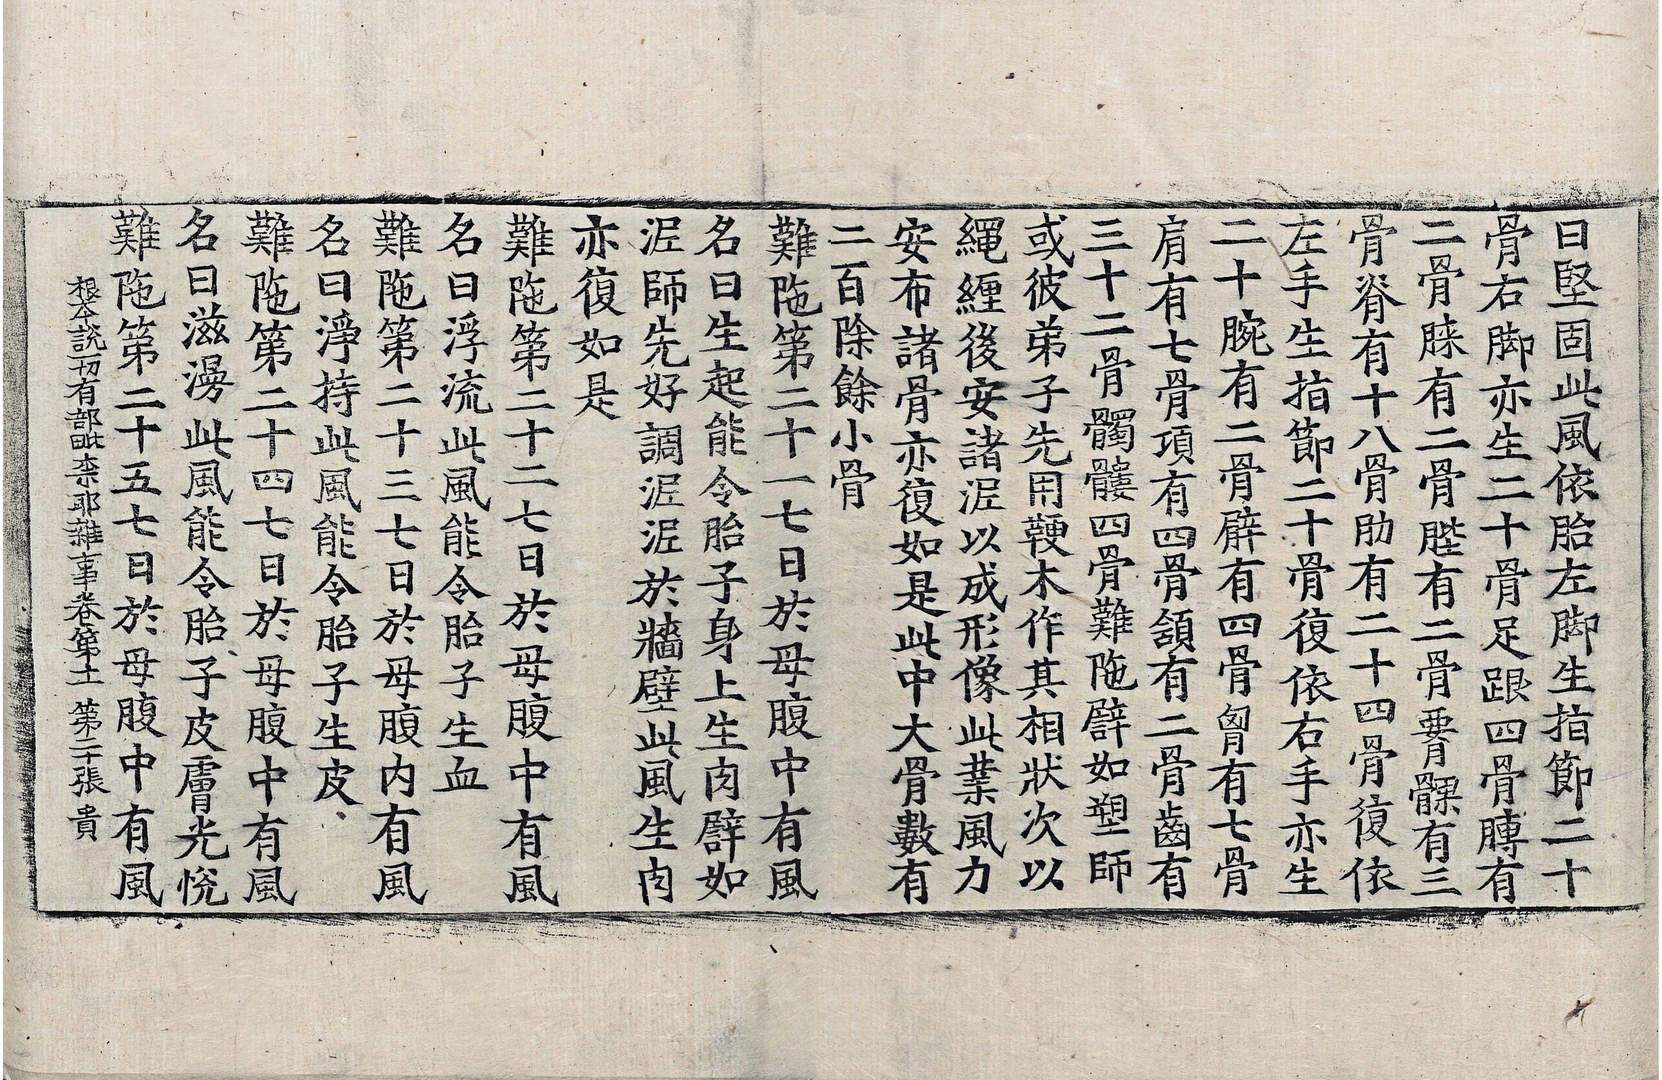 曰堅固此風依胎左脚生指節二十
骨右脚亦生二十骨足跟四骨膞有
二骨膝有二骨䏶有二骨𦝫髁有三
骨脊有十八骨肋有二十四骨復依
左手生指節二十骨復依右手亦生
二十腕有二骨臂有四骨胷有七骨
肩有七骨項有四骨頷有二骨齒有
三十二骨髑髏四骨難陁譬如塑師
或彼弟子先用鞕木作其相狀次以
繩纏後安諸泥以成形像此業風力
安布諸骨亦復如是此中大骨數有
二百除餘小骨
難陁第二十一七日於母腹中有風
名曰生起能令胎子身上生肉譬如
泥師先好調泥泥於牆壁此風生肉
亦復如是
難陁第二十二七日於母腹中有風
名曰浮流此風能令胎子生血
難陁第二十三七日於母腹内有風
名曰淨持此風能令胎子生皮
難陁第二十四七日於母腹中有風
名曰滋漫此風能令胎子皮膚光悅
難陁第二十五七日於母腹中有風
根本說一切有部毗柰耶雜事卷第十一 第二十張 貴